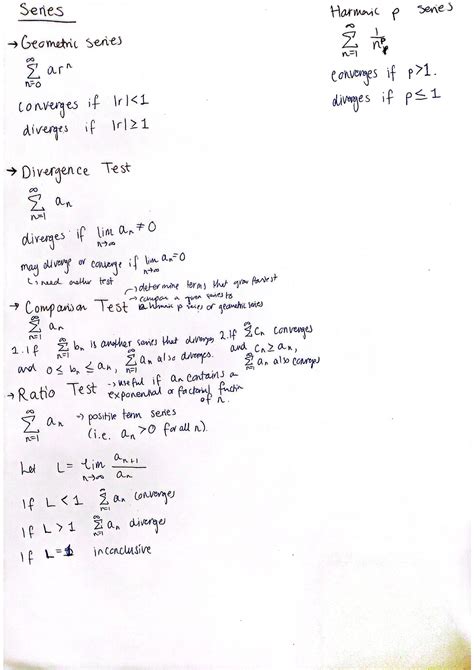 Series
→ Geometric Series
∞ Σ n=0 ar^n
converges if |r|<1
diverges if |r|≥1
Harmonic p series
∞ Σ n=1 1/n^p p
converges if p>1.
diverges if p≤1
→ Divergence Test
∞ Σ n=1 an
diverges if lim n→∞ an ≠ 0
may diverge or converge if lim n→∞ an = 0
↳ need another test
→ Comparison Test
→ determine terms that grow fastest
→ compare a given series to
harmonic p series or geometric series
∞ Σ n=1 an
1. if ∞ Σ n=1 bn is another series that diverges
and 0 ≤ bn ≤ an, ∞ Σ n=1 an also diverges.
2. if ∞ Σ n=1 cn converges
and cn ≥ an,
∞ Σ n=1 an also converges
→ Ratio Test → useful if an contains a
exponential or factorial
of n.
∞ Σ n=1 an → positive term series
(i.e. an > 0 for all n).
Let L = lim n→∞ an+1/an
If L < 1 ∞ Σ n=1 an converges
If L > 1 ∞ Σ n=1 an diverges
If L = 1 inconclusive